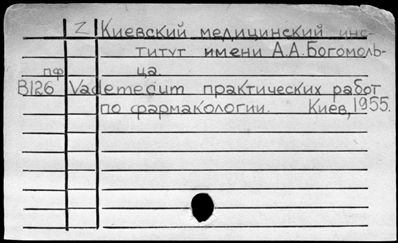 Z Киевский медицинский инс-
титут имени А.А.Богомоль-
ца.
пф
B126 Vademecum практических работ
по фармакологии. Киев, 1955.